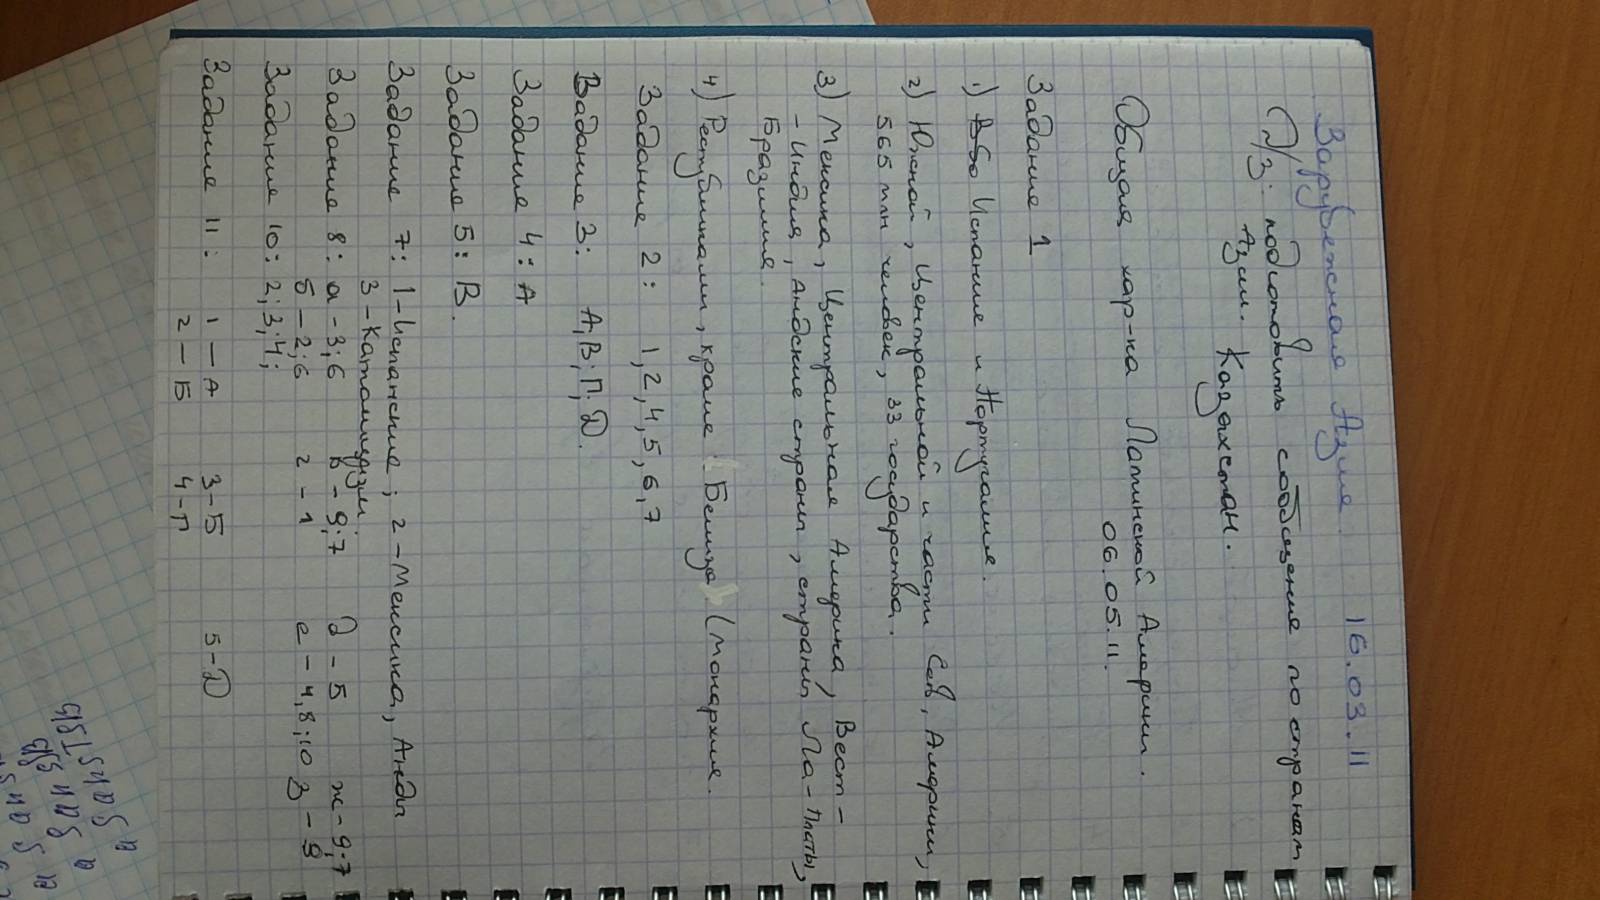 Зарубежная Азия. 16.03.11
Д/З: подготовить сообщение по странам
Азии. Казахстан.
Общая хар-ка Латинской Америки.
06.05.11.
Задание 1
1) Испание и Португалия.
2) Южной, Центральной и части Сев, Америки,
565 млн человек, 33 государства.
3) Мексика, Центральная Америка, Вест –
- Индия, Андские страны, страны Ла-Платы,
Бразилия.
4) Республиками, кроме Белиза (монархия.
Задание 2: 1, 2, 4, 5, 6, 7
Задание 3: А; В; Г; Д.
Задание 4: А
Задание 5: В.
Задание 7: 1-Испанские; 2-Мексика, Анды
3-Католицизм.
Задание 8: а-3;6 в-9;7 д-5 ж-9;7
б-2;6 г-1 е-4,8;10 з-9
Задание 10: 2; 3; 4;
Задание 11: 1-А 3-Б 5-Д
2-Б 4-Г